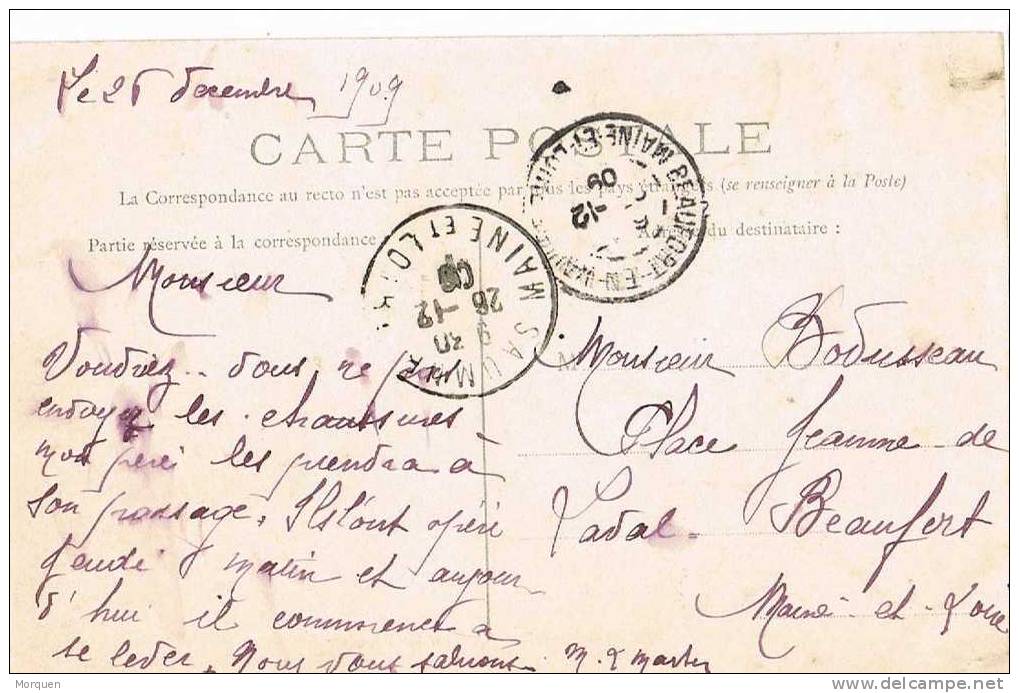 Le 26 decembre 1909
CARTE POSTALE
La Correspondance au recto n'est pas acceptée par tous les pays étrangers (se renseigner à la Poste)
Partie réservée à la correspondance
du destinataire :
BEAUFORT-EN-VALLÉE MAINE-ET-LOIRE
-12
09
SAUMUR MAINE ET LOIRE
26-12
09
Monsieur
Voudriez-vous ne pas
envoyez les chaussures
mon père les prendra à
son passage. Ils l'ont opéré
Jeudi matin et aujour
d'hui il commence à
se lever. Nous vous saluons.
Monsieur Bodusseau
Place Jeanne-de
Laval-Beaufort
Maine-et-Loire
Morquen
www.delcampe.net